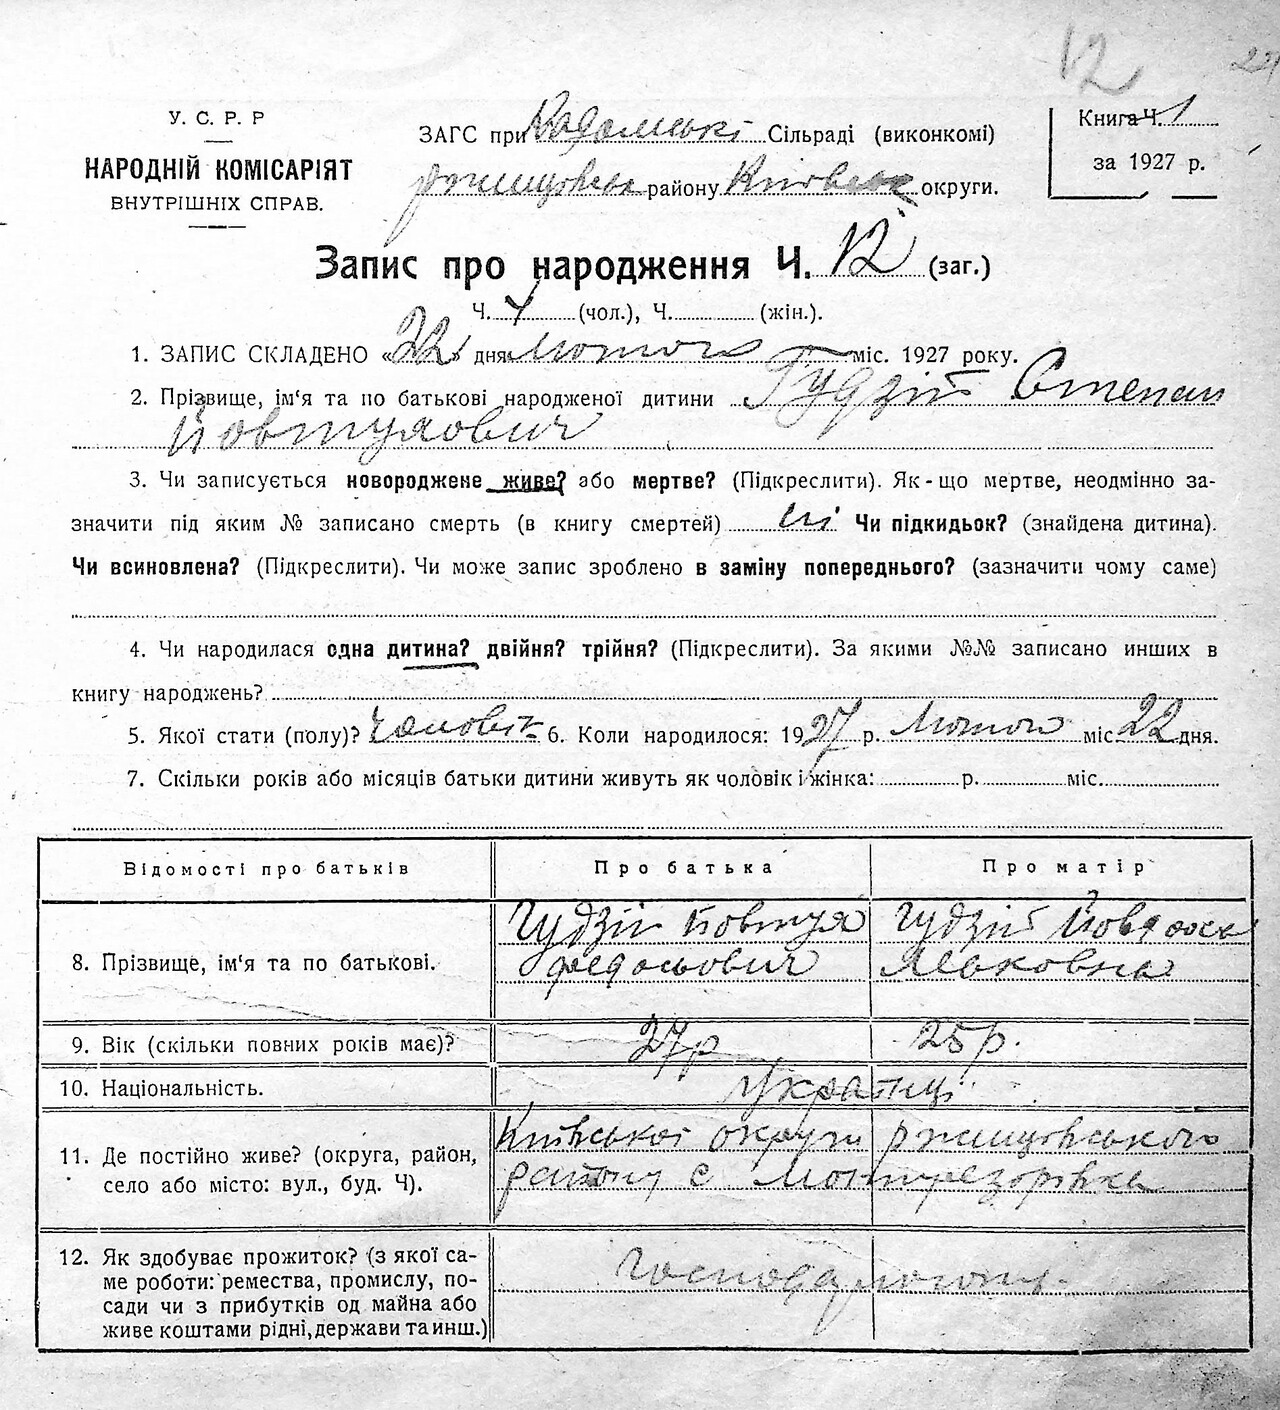 12
У. С. Р. Р
НАРОДНІЙ КОМІСАРІЯТ
ВНУТРІШНІХ СПРАВ.
ЗАГС при Сільраді (виконкомі)
ржищовськ району Київськ округи.
Книга Ч. 1
за 1927 р.
Запис про народження Ч. 12 (заг.)
Ч. 4 (чол.), Ч. (жін.).
1. ЗАПИС СКЛАДЕНО «22» дня лютого міс. 1927 року.
2. Прізвище, ім‘я та по батькові народженої дитини Гудзій Степан
Йовтухович
3. Чи записується новороджене живе? або мертве? (Підкреслити). Як-що мертве, неодмінно за-
значити під яким № записано смерть (в книгу смертей) ні Чи підкидьок? (знайдена дитина).
Чи всиновлена? (Підкреслити). Чи може запис зроблено в заміну попереднього? (зазначити чому саме)
4. Чи народилася одна дитина? двійня? трійня? (Підкреслити). За якими №№ записано инших в
книгу народжень?
5. Якої стати (полу)? Чоловік 6. Коли народилося: 1927 р. Лютого міс. 22 дня.
7. Скільки років або місяців батьки дитини живуть як чоловік і жінка: р. міс.
Відомості про батьків
Про батька
Про матір
8. Прізвище, ім‘я та по батькові.
Гудзій Йовтух
Федосьович
Гудзій
Яковна
9. Вік (скільки повних років має)?
27 р
25 р.
10. Національність.
Українці
11. Де постійно живе? (округа, район,
село або місто: вул., буд. Ч).
Київської округи ржищовського
району с Монтрезорівка
12. Як здобуває прожиток? (з якої са-
ме роботи: ремества, промислу, по-
сади чи з прибутків од майна або
живе коштами рідні, держави та инш.)